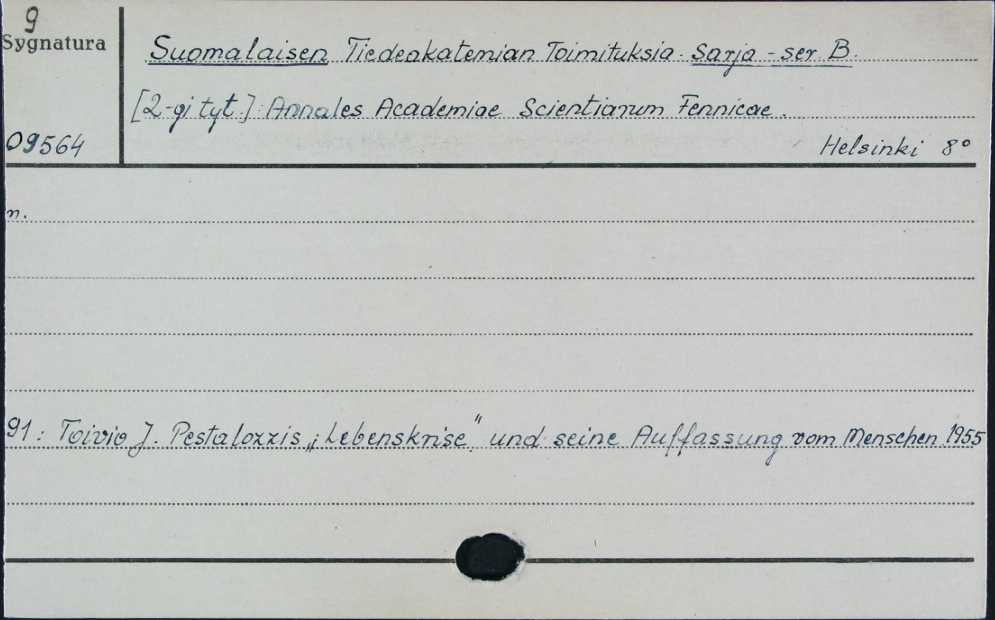 9
Sygnatura
Suomalaisen Tiedeakatemian Toimituksia. Sarja - ser B.
[2-gi tyt.] Annales Academiae Scientiarum Fennicae.
09564
Helsinki 8°
n.
91: Toivio J. Pestalozzis „Lebenskrise" und seine Auffassung vom Menschen 1955